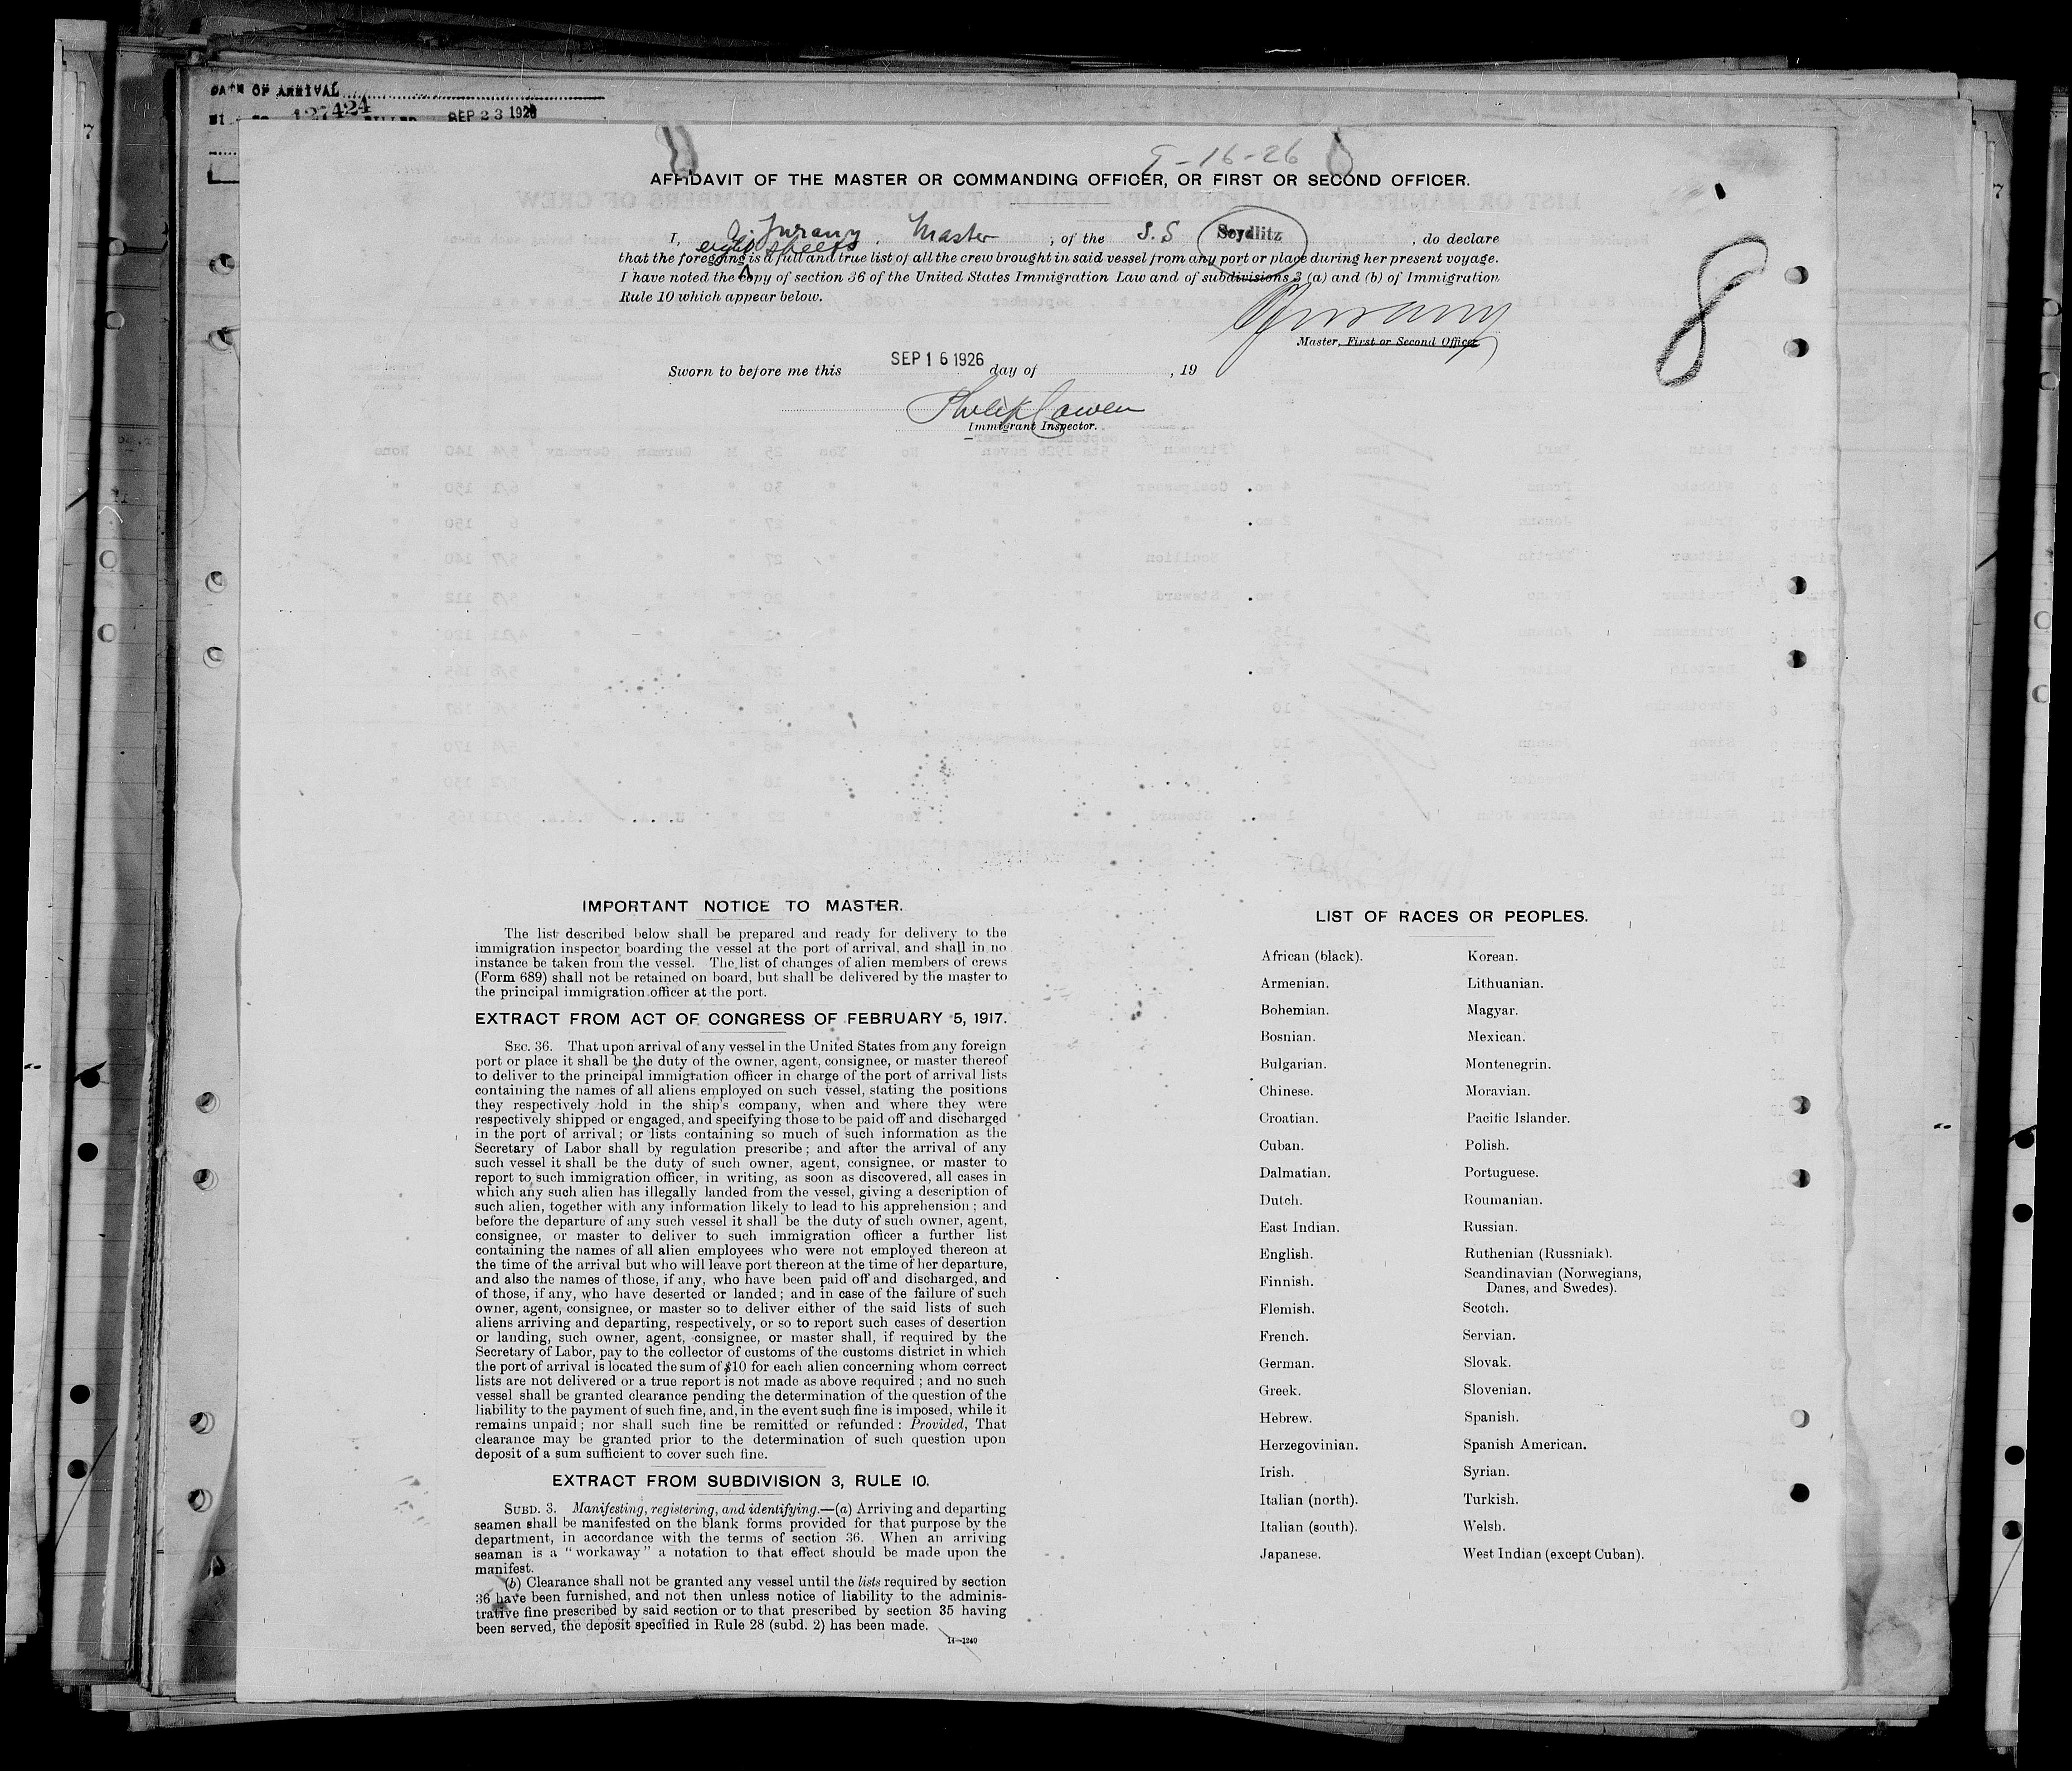 DATE OF ARRIVAL
127424 SEP 23 1926
9-16-26
AFFIDAVIT OF THE MASTER OR COMMANDING OFFICER, OR FIRST OR SECOND OFFICER.
I, Jurany, Master, of the S.S Seydlitz, do declare
eight sheets
that the foregoing is a full and true list of all the crew brought in said vessel from any port or place during her present voyage.
I have noted the copy of section 36 of the United States Immigration Law and of subdivisions 3 (a) and (b) of Immigration
Rule 10 which appear below.
8
Master, First or Second Officer
Sworn to before me this SEP 16 1926 day of , 19
Philip Cowen
Immigrant Inspector.
IMPORTANT NOTICE TO MASTER.
The list described below shall be prepared and ready for delivery to the
immigration inspector boarding the vessel at the port of arrival, and shall in no
instance be taken from the vessel. The list of changes of alien members of crews
(Form 689) shall not be retained on board, but shall be delivered by the master to
the principal immigration officer at the port.
EXTRACT FROM ACT OF CONGRESS OF FEBRUARY 5, 1917.
SEC. 36. That upon arrival of any vessel in the United States from any foreign
port or place it shall be the duty of the owner, agent, consignee, or master thereof
to deliver to the principal immigration officer in charge of the port of arrival lists
containing the names of all aliens employed on such vessel, stating the positions
they respectively hold in the ship's company, when and where they were
respectively shipped or engaged, and specifying those to be paid off and discharged
in the port of arrival; or lists containing so much of such information as the
Secretary of Labor shall by regulation prescribe; and after the arrival of any
such vessel it shall be the duty of such owner, agent, consignee, or master to
report to such immigration officer, in writing, as soon as discovered, all cases in
which any such alien has illegally landed from the vessel, giving a description of
such alien, together with any information likely to lead to his apprehension; and
before the departure of any such vessel it shall be the duty of such owner, agent,
consignee, or master to deliver to such immigration officer a further list
containing the names of all alien employees who were not employed thereon at
the time of the arrival but who will leave port thereon at the time of her departure,
and also the names of those, if any, who have been paid off and discharged, and
of those, if any, who have deserted or landed; and in case of the failure of such
owner, agent, consignee, or master so to deliver either of the said lists of such
aliens arriving and departing, respectively, or so to report such cases of desertion
or landing, such owner, agent, consignee, or master shall, if required by the
Secretary of Labor, pay to the collector of customs of the customs district in which
the port of arrival is located the sum of $10 for each alien concerning whom correct
lists are not delivered or a true report is not made as above required; and no such
vessel shall be granted clearance pending the determination of the question of the
liability to the payment of such fine, and, in the event such fine is imposed, while it
remains unpaid; nor shall such fine be remitted or refunded: Provided, That
clearance may be granted prior to the determination of such question upon
deposit of a sum sufficient to cover such fine.
EXTRACT FROM SUBDIVISION 3, RULE 10.
SUBD. 3. Manifesting, registering, and identifying.—(a) Arriving and departing
seamen shall be manifested on the blank forms provided for that purpose by the
department, in accordance with the terms of section 36. When an arriving
seaman is a "workaway" a notation to that effect should be made upon the
manifest.
(b) Clearance shall not be granted any vessel until the lists required by section
36 have been furnished, and not then unless notice of liability to the adminis-
trative fine prescribed by said section or to that prescribed by section 35 having
been served, the deposit specified in Rule 28 (subd. 2) has been made.
14—1240
LIST OF RACES OR PEOPLES.
African (black).
Armenian.
Bohemian.
Bosnian.
Bulgarian.
Chinese.
Croatian.
Cuban.
Dalmatian.
Dutch.
East Indian.
English.
Finnish.
Flemish.
French.
German.
Greek.
Hebrew.
Herzegovinian.
Irish.
Italian (north).
Italian (south).
Japanese.
Korean.
Lithuanian.
Magyar.
Mexican.
Montenegrin.
Moravian.
Pacific Islander.
Polish.
Portuguese.
Roumanian.
Russian.
Ruthenian (Russniak).
Scandinavian (Norwegians,
Danes, and Swedes).
Scotch.
Servian.
Slovak.
Slovenian.
Spanish.
Spanish American.
Syrian.
Turkish.
Welsh.
West Indian (except Cuban).